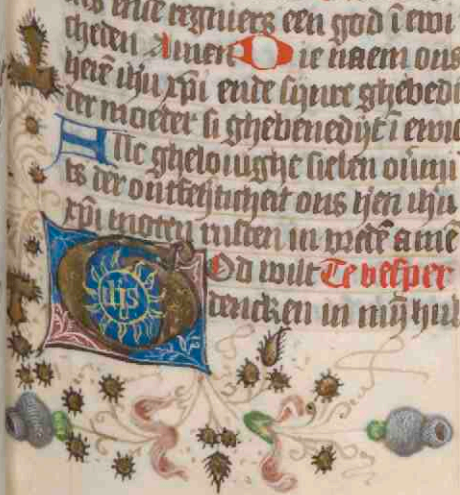 ende regniers een god i ewi
cheden Amen Die naem ons
here ihu xpi ende synre ghebedi
der moeder si ghebenedijt i ewic
Alle ghelouighe sielen oumi
ts der ontfermicheit ons hen ihu
xpi moten rusten in vrede ame
ihs
God wilt Te vesper
dencken in mijn hul